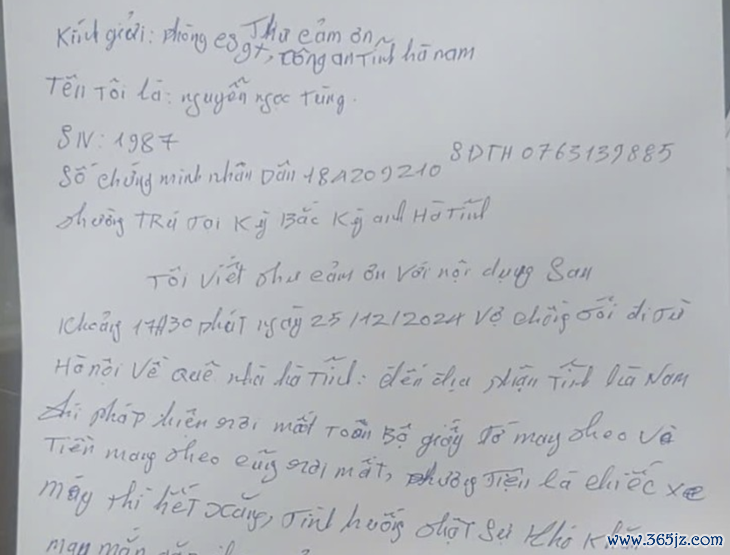 Thư cảm ơn
Kính gửi: phòng csgt, công an tỉnh hà nam
Tên Tôi là: nguyễn ngọc Tùng.
SN: 1987
SDTH 0763139885
Số chứng minh nhân Dân 184209210
thường TRú Tại Kỳ Bắc Kỳ anh Hà Tĩnh
Tôi viết thư cảm ơn với nội dung Sau
Khoảng 17h30 phút ngày 25/12/2024 vợ chồng tôi đi từ
Hà nội Về Quê nhà hà Tĩnh: đến địa phận Tỉnh Hà Nam
thì phát hiện rơi mất Toàn Bộ giấy tờ mang theo và
Tiền mang theo cũng rơi mất, phương Tiện là chiếc xe
máy thì hết xăng, tình huống thật sự Khó Khăn
may mắn
www.365jz.com